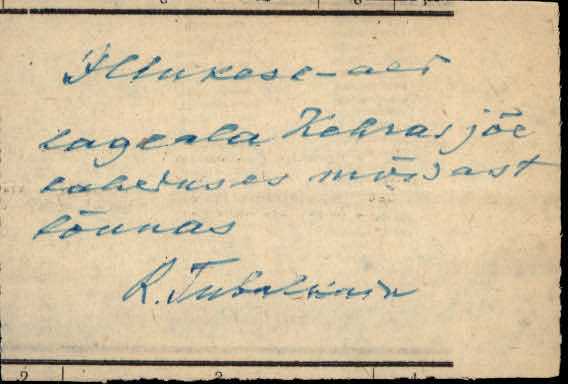 Illukese-aed
lageala Kehras jõe
laheduses mõisast
lõunas
R. Tubalkain